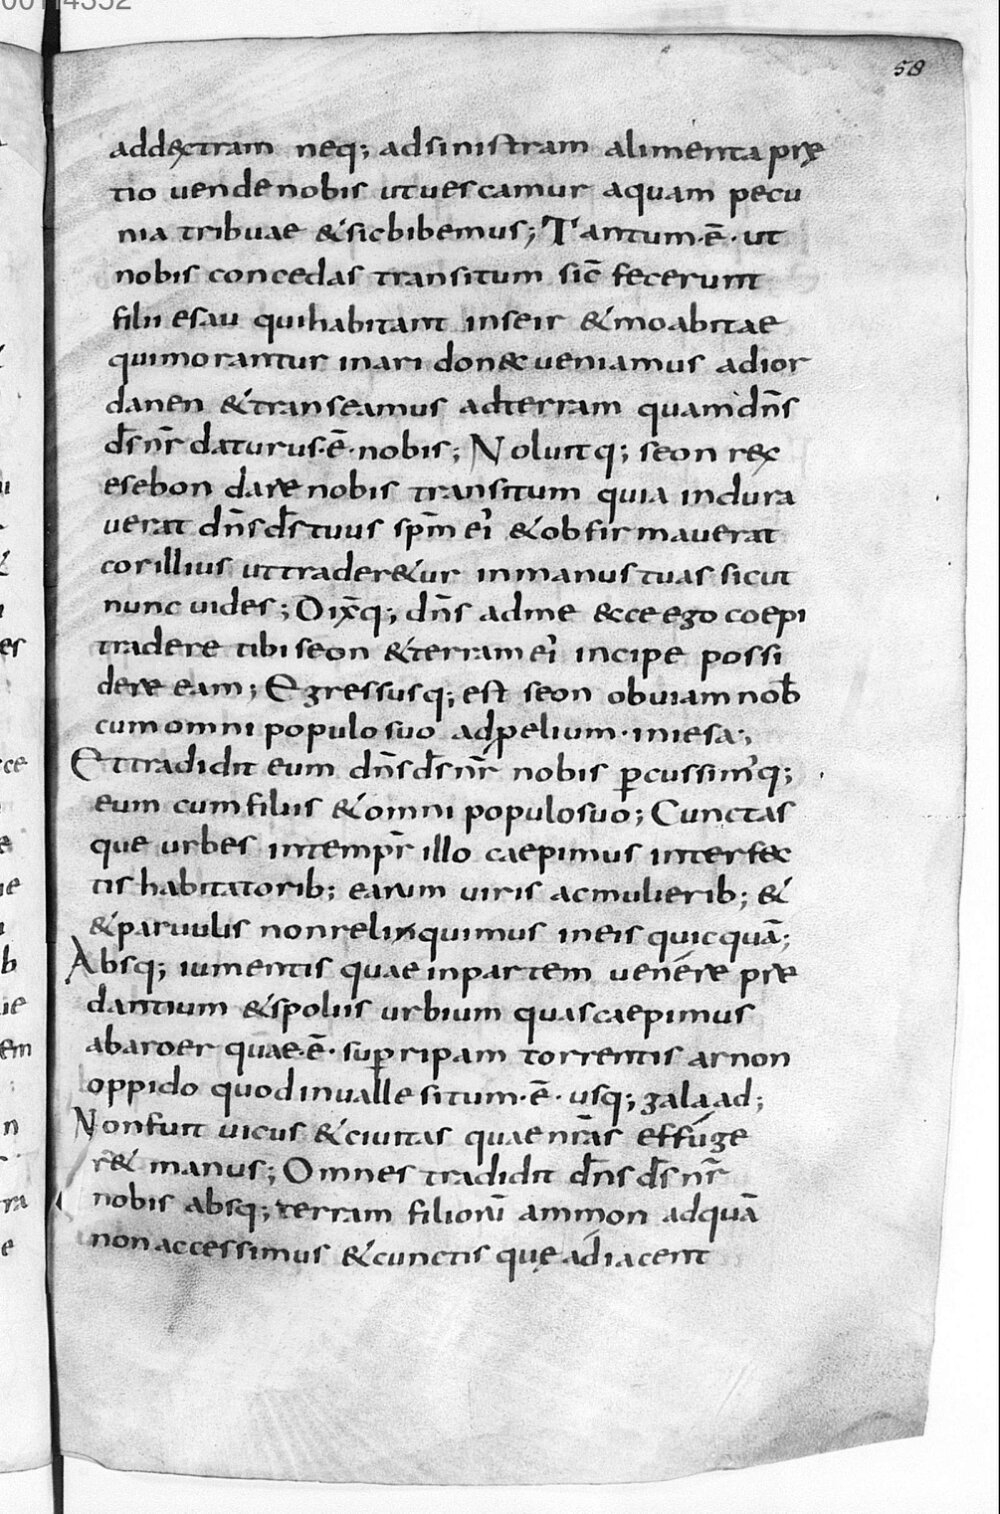 58
addextram neq; adsinistram alimenta prę
tio uende nobis utuescamur aquam pecu
nia tribuae &sicbibemus; Tantum·ē·ut
nobis concedas transitum sic̄ fecerunt
filii esau quihabitant inseir &moabitae
quimorantur inari don&ueniamus adior
danen &transeamus adterram quam dn̄s
ds̄ nr̄ daturus·ē·nobis; Noluitq; seon rex
esebon dare nobis transitum quia indura
uerat dn̄s ds̄ tuus spm̄ ei' &obfirmauerat
corillius uttrader&ur inmanus tuas sicut
nunc uides; Dix̄q; dn̄s adme &ce ego coepi
tradere tibi seon &terram ei' incipe possi
dere eam; Egressusq; est seon obuiam nob̄
cum omni populo suo adpelium·iniesa;
Ettradidit eum dn̄s ds̄ nr̄ nobis ꝑcussim'q;
eum cum filiis &omni populosuo; Cunctas
que urbes intempr̄ illo caepimus interfec
tis habitatorib; earum uiris acmulierib; &
&paruulis nonrelinquimus ineis quicquā;
Absq; iumentis quae inpartem uenére pre
dantium &spoliis urbium quas caepimus
abaroer quae·ē·suꝑripam torrentis arnon
oppido quod inualle situm·ē·usq; galaad;
Nonfuit uicus &ciuitas quae nr̄as effúge
r& manus; Omnes tradidit dn̄s ds̄ nr̄
nobis absq; terram filiorū ammon adquā
non accessimus &cunctis quę adiacent